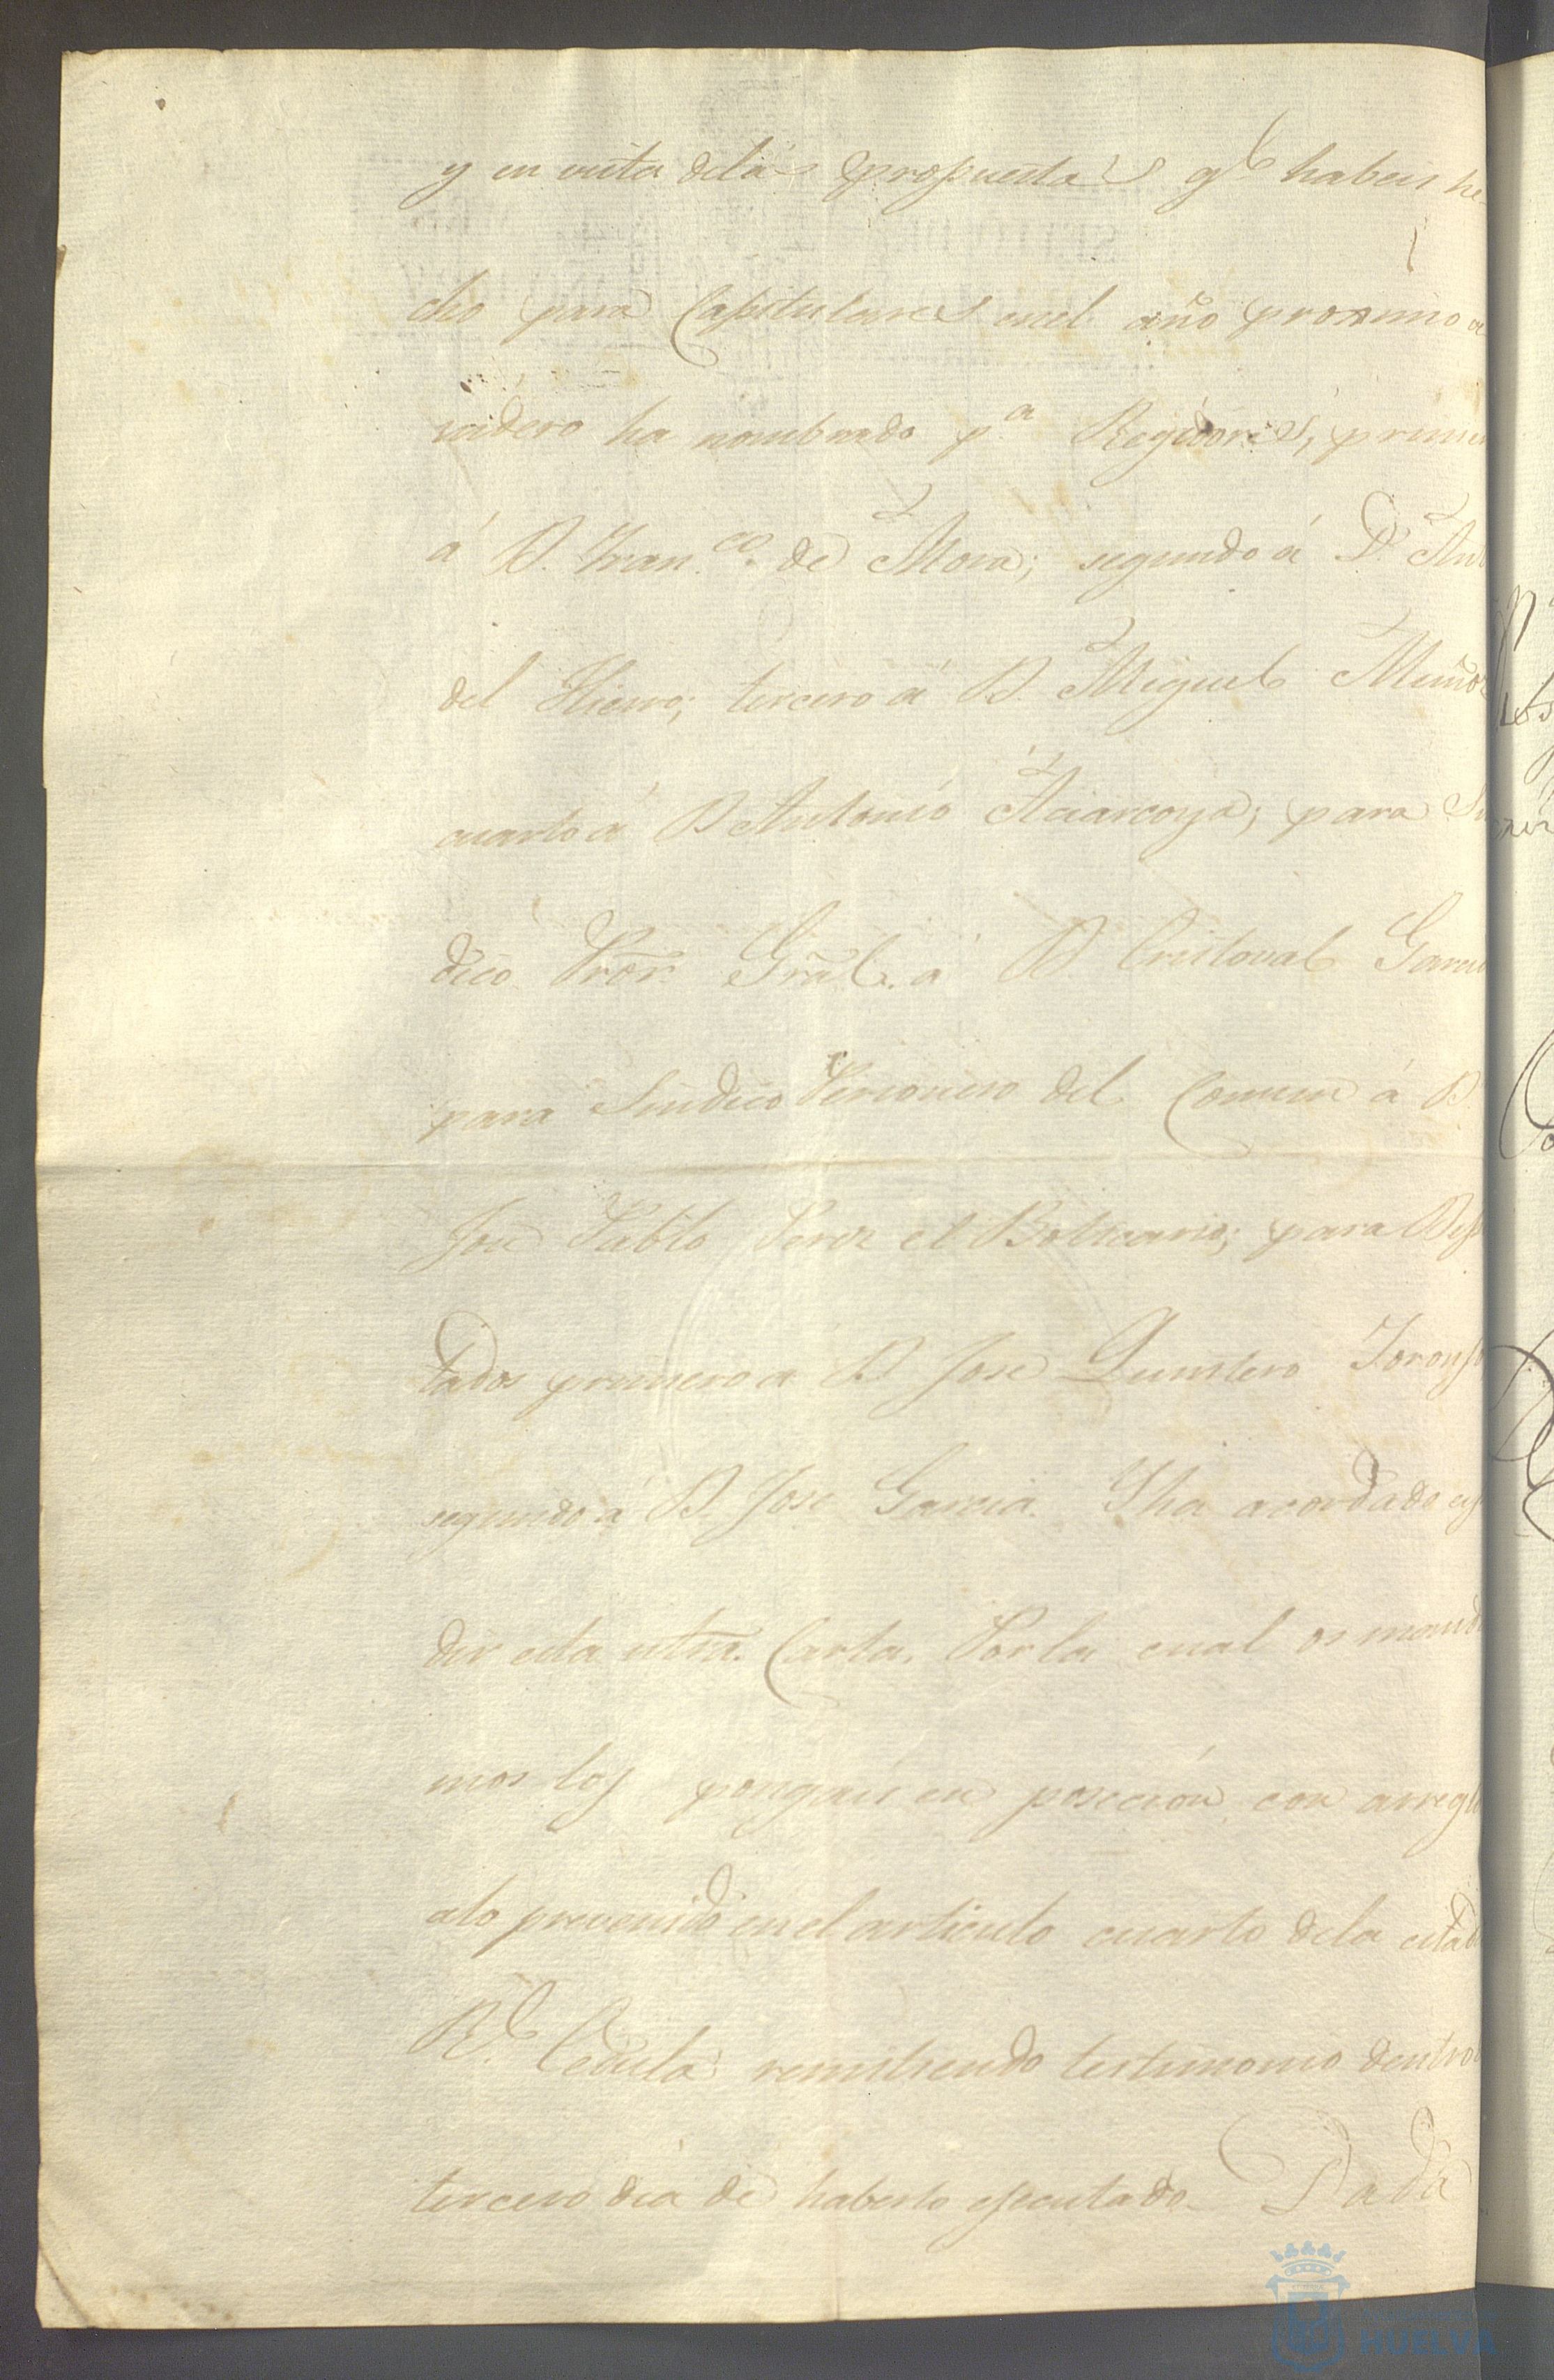 y en vista delas propuestas q.e habeis he
cho para Capitulares en el año proximo a
videro ha nombrado p.a Regidores, prime
á D. Fran.co de Mora; segundo á D. Ant
del Hierro; tercero á D. Miguel Muñoz
cuarto á D Antonio ; para Sin
dico Prõr. Grãl. á D. Cristoval Garcia
para Sindico Personero del Comun á D.
José Pablo Perez el Boticario; para Dipu
tados primero a D. Jose Quintero
segundo á D. Jose Garcia. Y ha acordado esp
dir esta ntra. Carta. Por la cual os manda
mos los pongais en posecion con arreglo
alo prevenido en el articulo cuarto dela citada
R.l Cedula remitiendo testimonio dentro
tercero dia de haberlo ejecutado. Dada
HUELVA